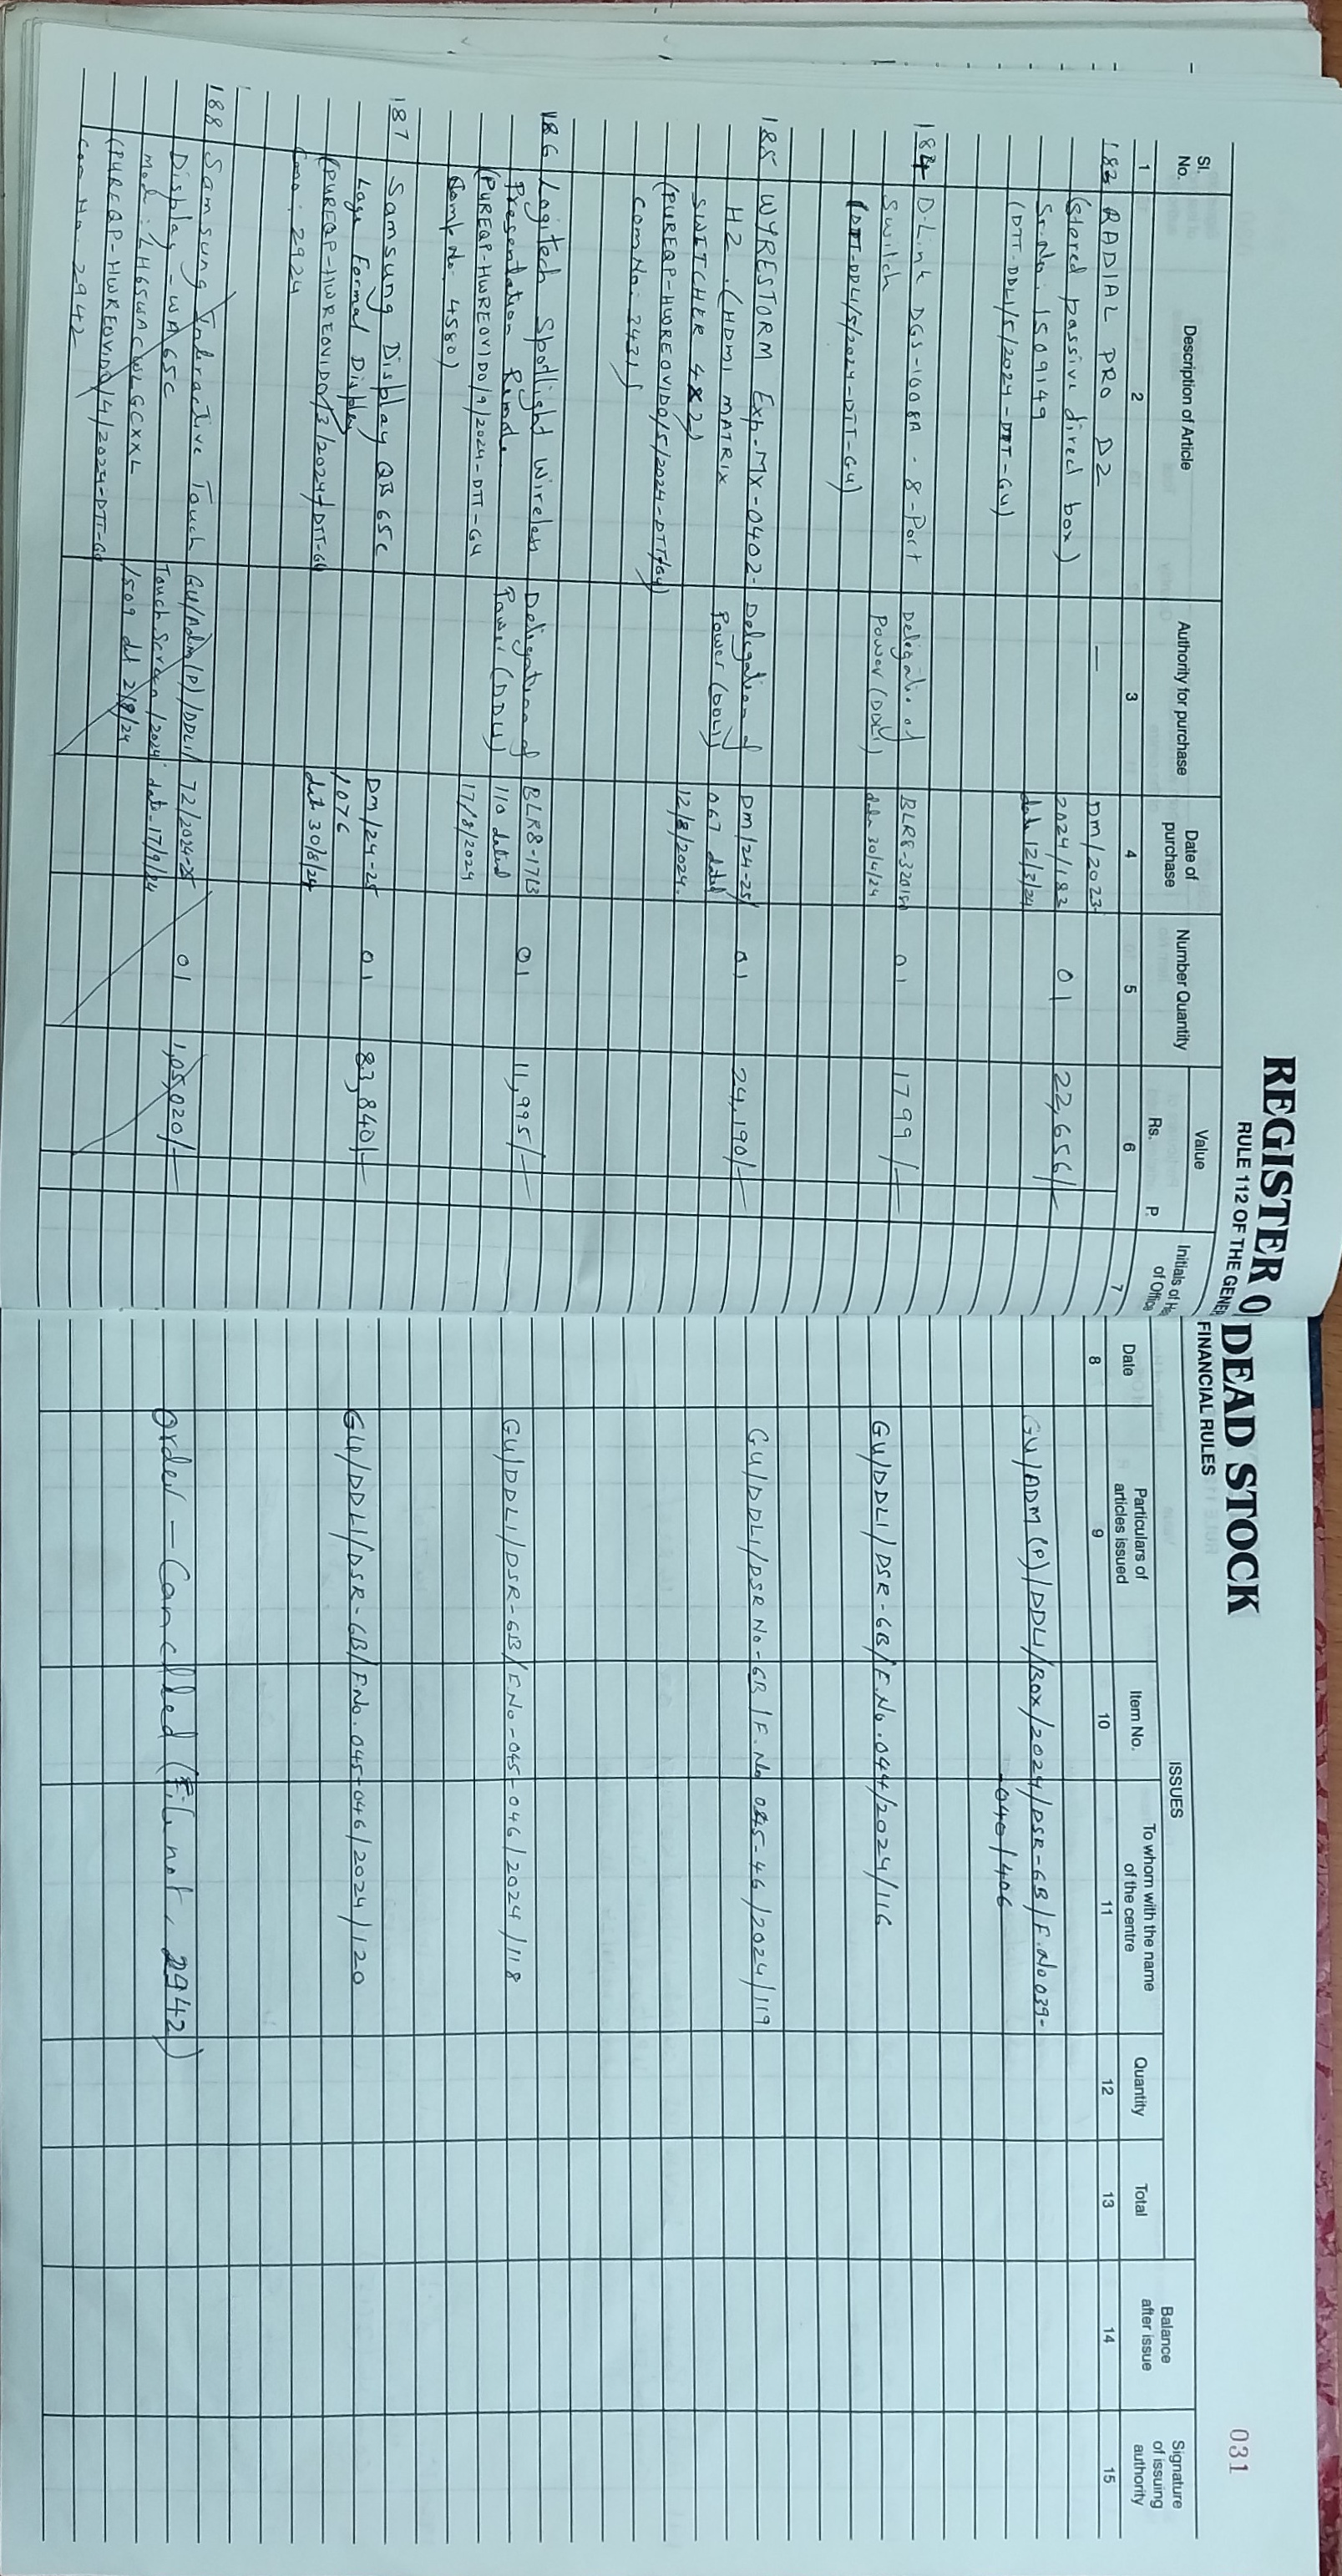 REGISTER O DEAD STOCK
RULE 112 OF THE GENER FINANCIAL RULES
031
Sl. No.
Description of Article
Authority for purchase
Date of purchase
Number Quantity
Value
Rs. P.
Initials of He of Office
ISSUES
Date
Particulars of articles issued
Item No.
To whom with the name of the centre
Quantity
Total
Balance after issue
Signature of issuing authority
1 2 3 4 5 6 7 8 9 10 11 12 13 14 15
183 RADIAL PRO D2 — DM/2023-
(stered passive dired box) 2024/182 01 22,656/-
Sr. No. 1509149 date 12/3/24 GU/ADM(P)/DDLI/Box/2024/DSR-6B/F.No 039-
(DTT-DDLI/5/2024-DTT-GU) -040/406
184 D-Link DGS-1008A - 8-Port Deligation of BLR8-320150 01 1799/-
Switch Power (DDLI) date 30/4/24 GU/DDLI/DSR-6B/F.No.044/2024/116
(DTT-DDLI/5/2024-DTT-GU)
185 WYRESTORM Exp-MX-0402- Deligation of DM/24-25/ 01 24,190/- GU/DDLI/DSR No-6B/F.No 045-46/2024/119
H2 . (HDMI MATRIX Power (DDLI) 067 dated
SWITCHER 4X2) 12/8/2024.
(PUREQP-HWREOVIDO/5/2024-DTT/GU)
Com No: 2431)
186 Logitech Spotlight Wireless Deligation of BLR8-1713 01 11,995/-
Presentation Remote Power (DDLI) 110 dated GU/DDLI/DSR-6B/F.No-045-046/2024/118
(PUREQP-HWREOVIDO/9/2024-DTT-GU 17/8/2024
Comp No. 4580)
187 Samsung Display QB65C DM/24-25 01 83,840/- GU/DDLI/DSR-6B/F.No.045-046/2024/120
Lage Formal Display /076
(PUREQP-HWREOVIDO/3/2024/DTT-GU date 30/8/24
Cmo: 2924
188 Samsung Interactive Touch GU/Adim(P)/DDLI/ 72/2024-25 01 1,05,020/-
Display - WA65C Touch Screen/2024 date-17/9/24 Order - Cancelled (File not. 2942)
Mod: LH65WACWLGCXXL /509 dt 2/8/24
(PUREQP-HWREOVIDO/4/2024-DTT-GU
Com No. 2942